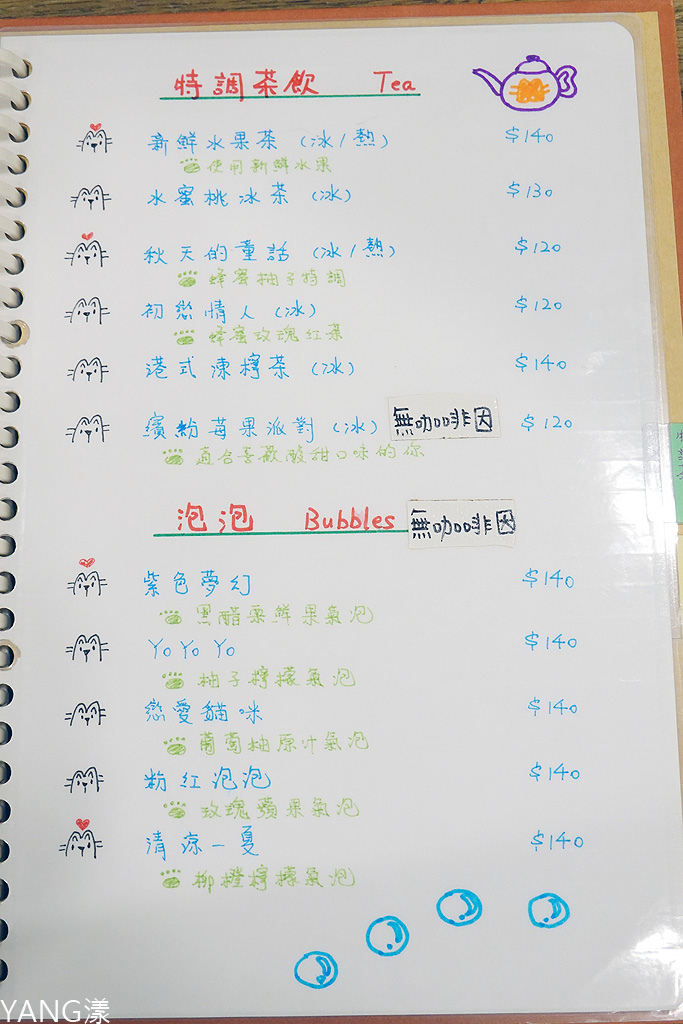 特調茶飲 Tea
新鮮水果茶 (冰/熱) $140
使用新鮮水果
水蜜桃冰茶 (冰) $130
秋天的童話 (冰/熱) $120
蜂蜜柚子特調
初戀情人 (冰) $120
蜂蜜玫瑰紅茶
港式凍檸茶 (冰) $140
繽紛莓果派對 (冰) 無咖啡因 $120
適合喜歡酸甜口味的你
泡泡 Bubbles 無咖啡因
紫色夢幻 $140
黑醋栗鮮果氣泡
YoYoYo $140
柚子檸檬氣泡
戀愛貓咪 $140
葡萄柚原汁氣泡
粉紅泡泡 $140
玫瑰蘋果氣泡
清涼一夏 $140
柳橙檸檬氣泡
YANG漾